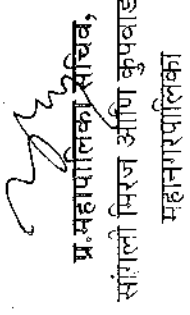 प्र.महापालिका सचिव,
सांगली मिरज आणि कुपवाड
महानगरपालिका